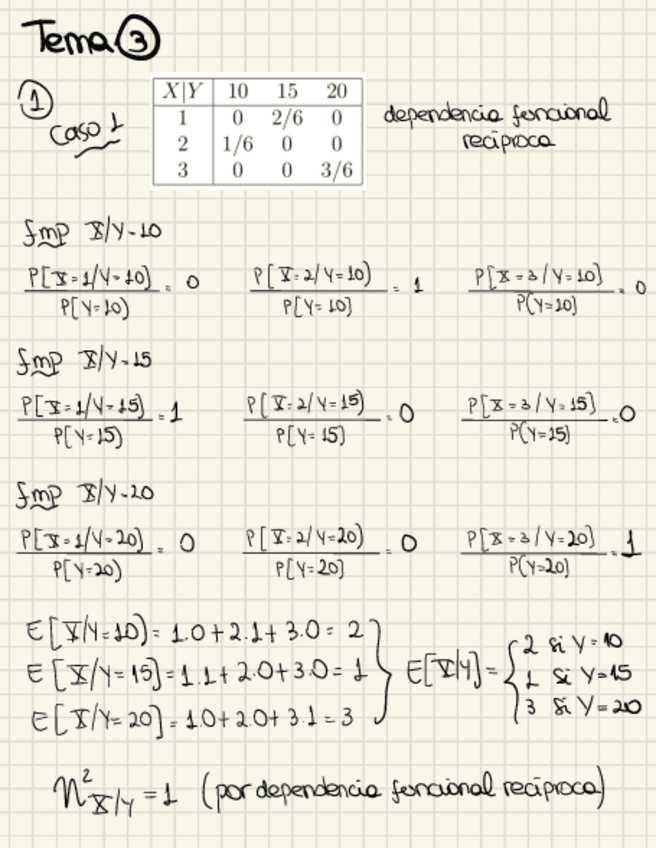 Tema ③
① X|Y 10 15 20
caso 1 1 0 2/6 0 dependencia funcional
2 1/6 0 0 recíproca
3 0 0 3/6
fmp X/Y=10
P[X=1/Y=10] / P[Y=10] = 0 P[X=2/Y=10] / P[Y=10] = 1 P[X=3/Y=10] / P[Y=10] = 0
fmp X/Y=15
P[X=1/Y=15] / P[Y=15] = 1 P[X=2/Y=15] / P[Y=15] = 0 P[X=3/Y=15] / P[Y=15] = 0
fmp X/Y=20
P[X=1/Y=20] / P[Y=20] = 0 P[X=2/Y=20] / P[Y=20] = 0 P[X=3/Y=20] / P[Y=20] = 1
E[X/Y=10] = 1·0+2·1+3·0 = 2
E[X/Y=15] = 1·1+2·0+3·0 = 1
E[X/Y=20] = 1·0+2·0+3·1 = 3
E[X/Y] = { 2 si Y=10
1 si Y=15
3 si Y=20
η²X/Y = 1 (por dependencia funcional recíproca)